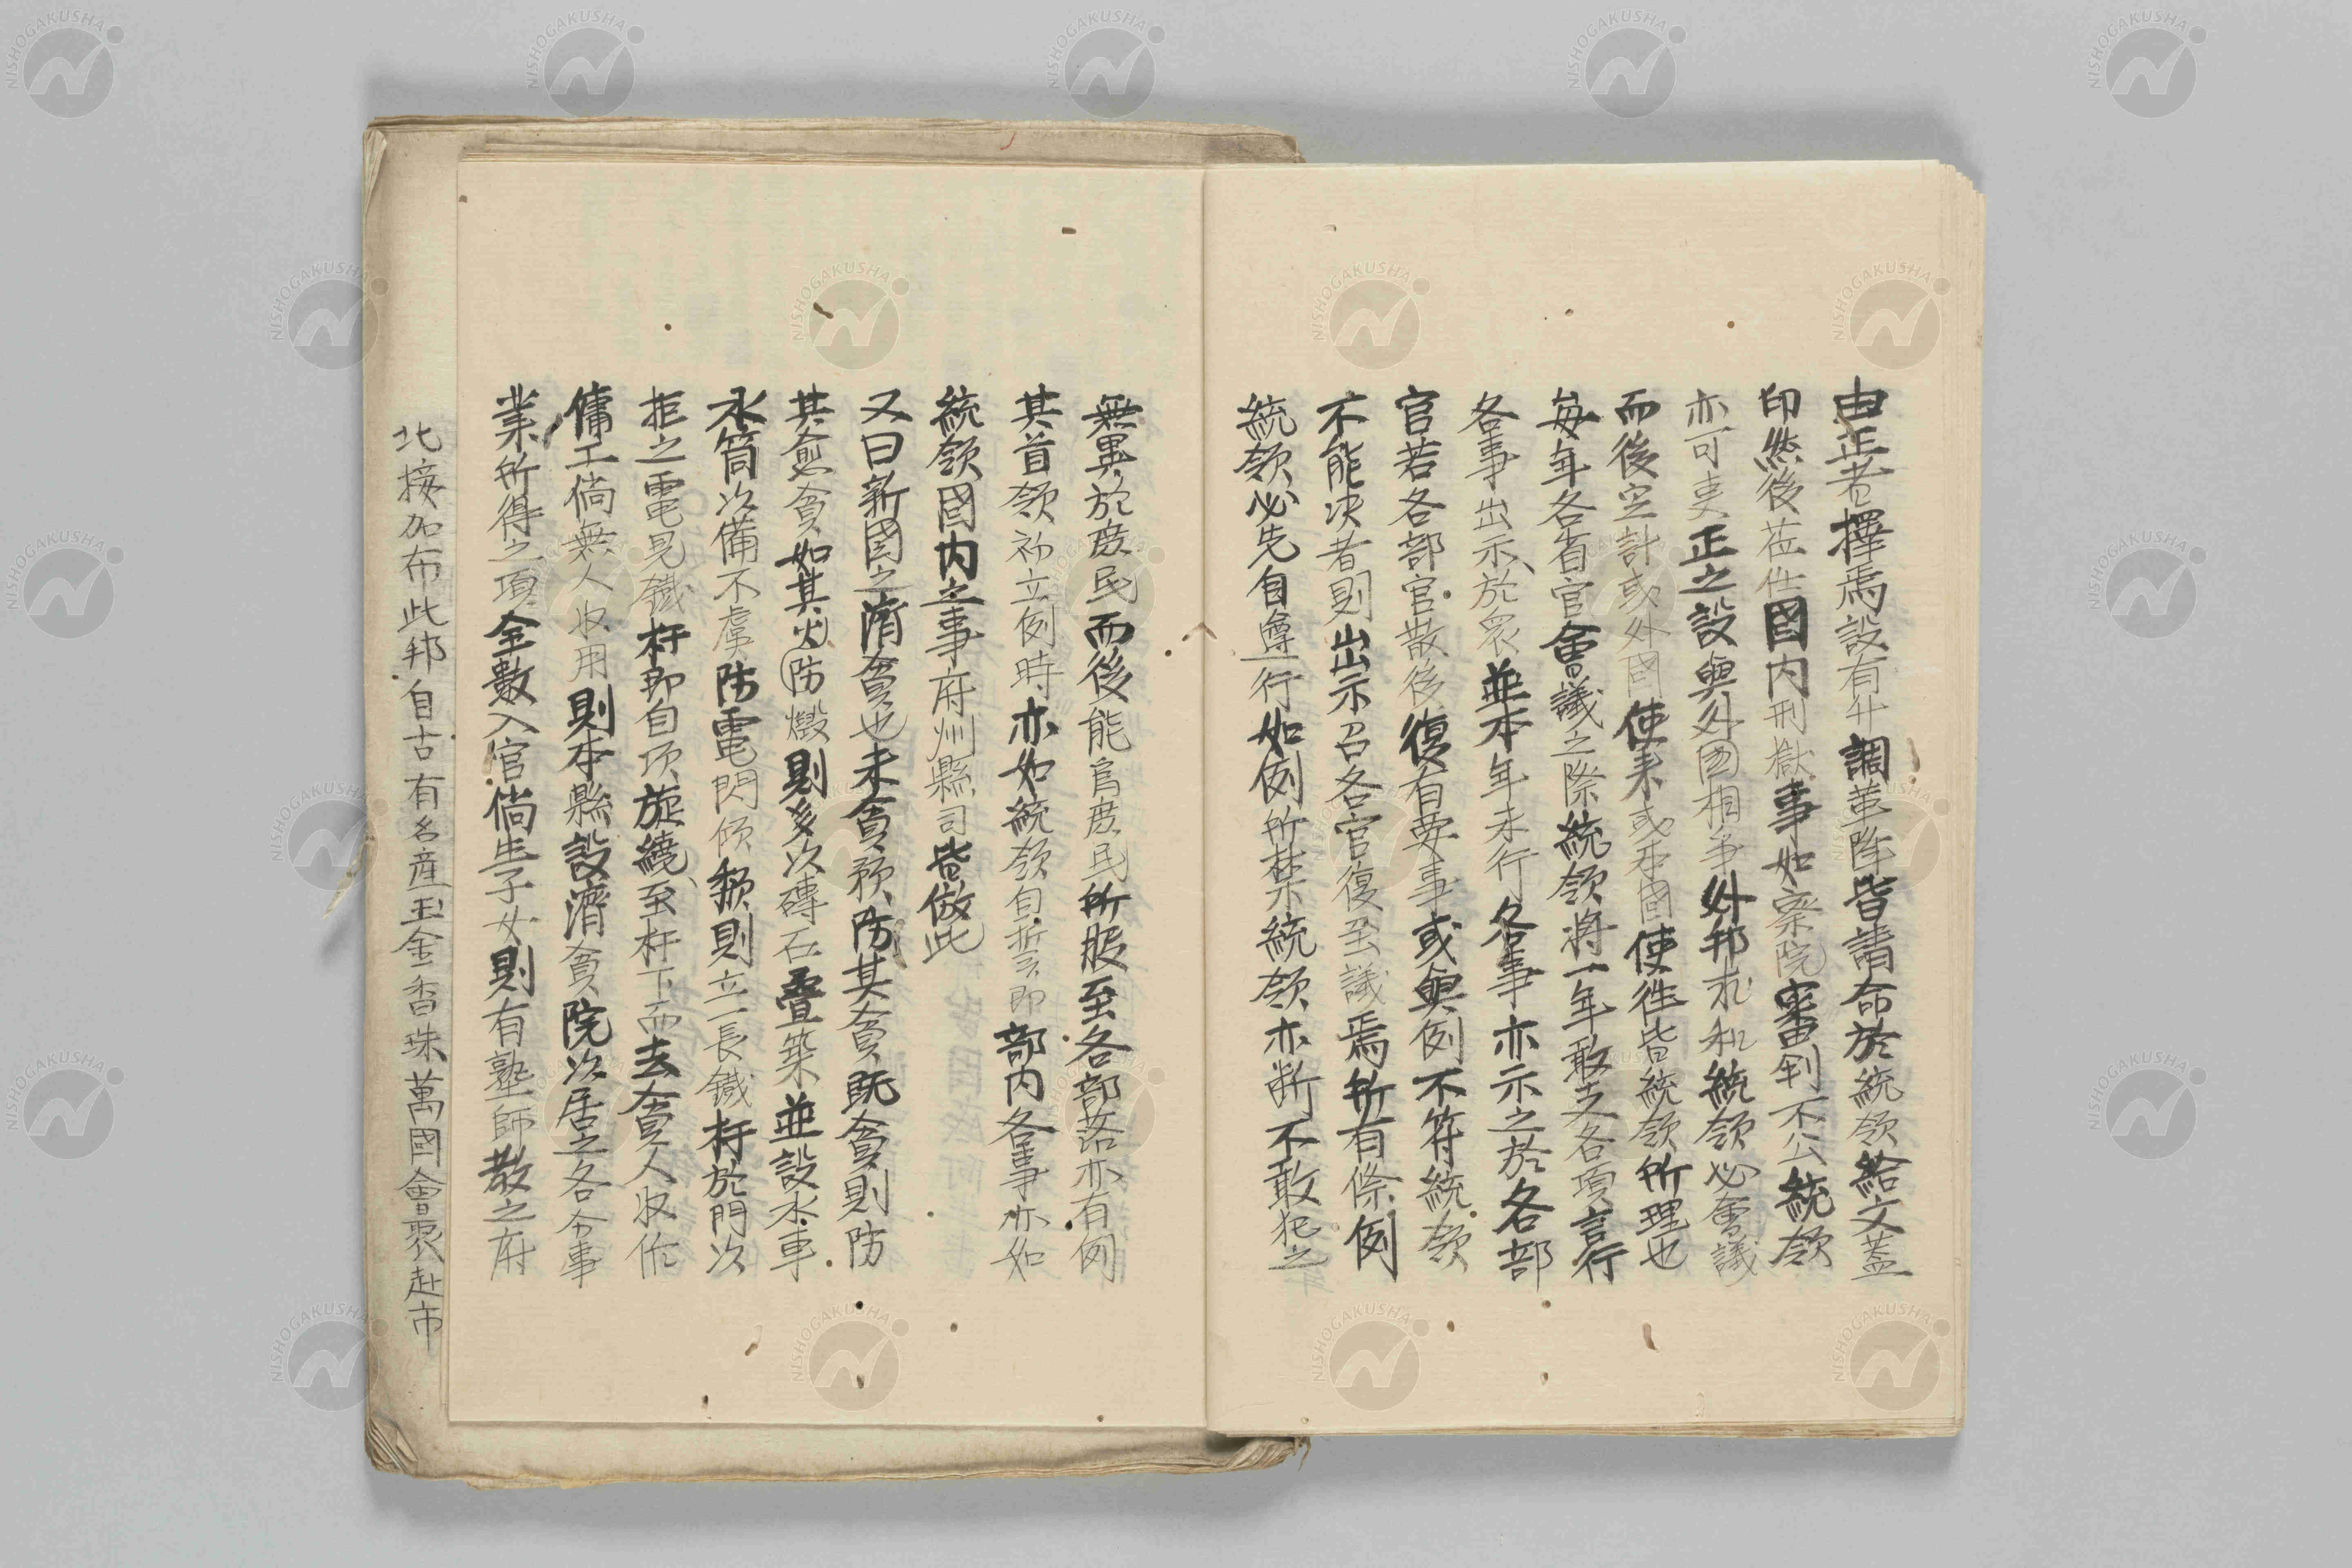 由正者擇焉設有升調革陞皆請命於統領給文蓋
印然後莅仕國内刑獄事如察院審判不公統領
亦可吏正之設與外國相爭外邦求和統領必會議
而後定計或外國使来或本國使徃皆統領所理也
每年各省官會議之際統領將一年敢之各項言行
各事出示於眾並本年未行各事亦示之於各部
官若各部官散後復有要事或與例不符統領
不能决者則出示召各官復至議焉所有條例
統領必先自遵行如例所禁統領亦断不敢犯之
無異於庶民而後能爲庶民所服至各部落亦有例
其首領初立例時亦如統領自誓即部内各事亦如
統領國内之事府州縣司皆倣此
又曰新國之濟貧也未貧預防其貧既貧則防
其愈貧如其火防燬則多次磚石疊築並設水車
水筒次備不虞防電閃傾頽則立一長鐵杆於門次
拒之電見鐵杆即自頂旋繞至杆下而去貧人收作
傭工倘無人收用則本縣設濟貧院次居之各今事
業所得之項全數入官倘生子女則有塾師教之府
北接加布此邦自古有名産玉金香珠萬國會聚赴市
NISHOGAKUSHA